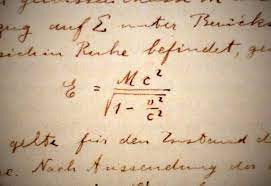 auf Σ unter
sich in Ruhe befindet, ge
ℰ = M c² / √(1 - v²/c²)
gelte für den Zustand d
e. Nach Aussendung des